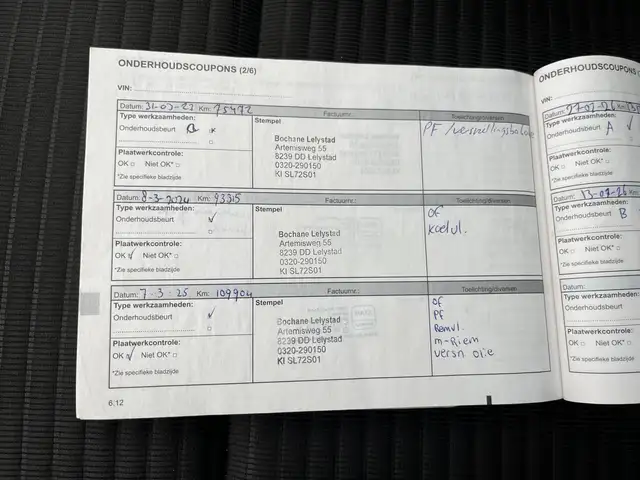 ONDERHOUDSCOUPONS (2/6)
VIN:
Datum: 31-03-23 Km: 75472 Factuurnr.: Toelichting/diversen
Type werkzaamheden:
Onderhoudsbeurt
Plaatwerkcontrole:
OK □ Niet OK* □
*Zie specifieke bladzijde
Stempel
Bochane Lelystad
Artemisweg 55
8239 DD Lelystad
0320-290150
KI SL72S01
PF
Datum: 8-3-2024 Km: 93315 Factuurnr.: Toelichting/diversen
Type werkzaamheden:
Onderhoudsbeurt √
Plaatwerkcontrole:
OK √ Niet OK* □
*Zie specifieke bladzijde
Stempel
Bochane Lelystad
Artemisweg 55
8239 DD Lelystad
0320-290150
KI SL72S01
OF
Koelvl.
Datum: 7-3-25 Km: 109904 Factuurnr.: Toelichting/diversen
Type werkzaamheden:
Onderhoudsbeurt √
Plaatwerkcontrole:
OK √ Niet OK* □
*Zie specifieke bladzijde
Stempel
Bochane Lelystad
Artemisweg 55
8239 DD Lelystad
0320-290150
KI SL72S01
OF
PF
Remvl.
m-Riem
versn olie
6.12
ONDERHOUDSCOUPONS
VIN:
Datum:
Type werkzaamheden:
Onderhoudsbeurt A √
Plaatwerkcontrole:
OK □ Niet OK* □
*Zie specifieke bladzijde
Datum:
Type werkzaamheden:
Onderhoudsbeurt B
Plaatwerkcontrole:
OK □ Niet OK* □
*Zie specifieke bladzijde
Datum:
Type werkzaamheden:
Onderhoudsbeurt
Plaatwerkcontrole:
OK □ Niet OK* □
*Zie specifieke bladzijde